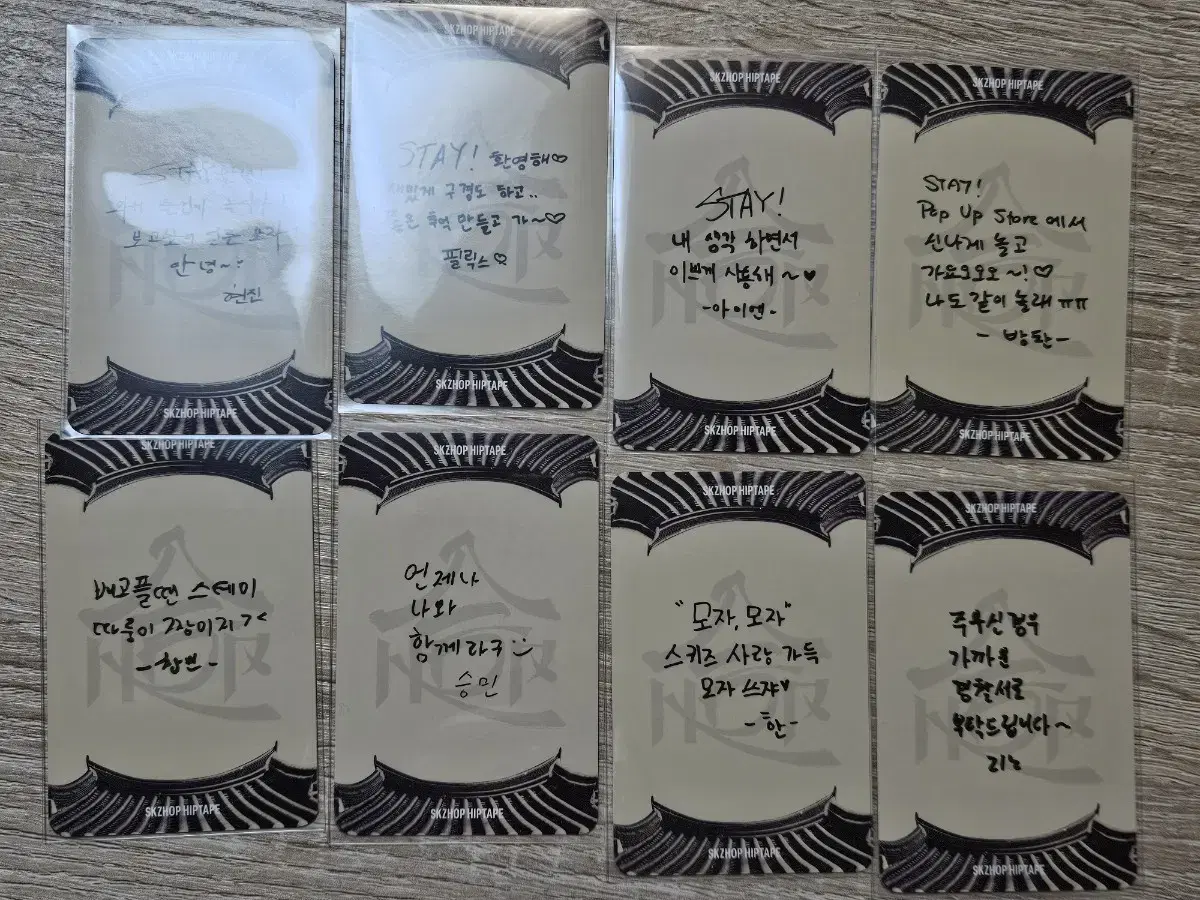 STAY!
안녕~
현진
SKZHOP HIPTAPE
SKZHOP HIPTAPE
STAY! 환영해♡
재밌게 구경도 하고..
좋은 추억 만들고 가~♡
필릭스
SKZHOP HIPTAPE
SKZHOP HIPTAPE
STAY!
내 생각 하면서
이쁘게 사용해~♥
-아이엔-
SKZHOP HIPTAPE
SKZHOP HIPTAPE
STAY!
Pop Up Store 에서
신나게 놀고
가요오오오~!♡
나도 같이 놀래 ㅠㅠ
- 방찬 -
SKZHOP HIPTAPE
SKZHOP HIPTAPE
배고플땐 스테이
따룽이 장이지
-창빈-
SKZHOP HIPTAPE
언제나
나와
함께라구
승민
SKZHOP HIPTAPE
SKZHOP HIPTAPE
"모자, 모자"
스키즈 사랑 가득
모자 쓰쟈♥
-한-
SKZHOP HIPTAPE
SKZHOP HIPTAPE
주우신경우
가까운
경찰서로
부탁드립니다~
리노
SKZHOP HIPTAPE